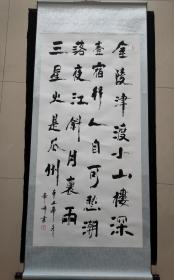 金陵津渡小山樓深
壹宿行人自可愁潮
落夜江斜月裏兩
三星火是瓜州